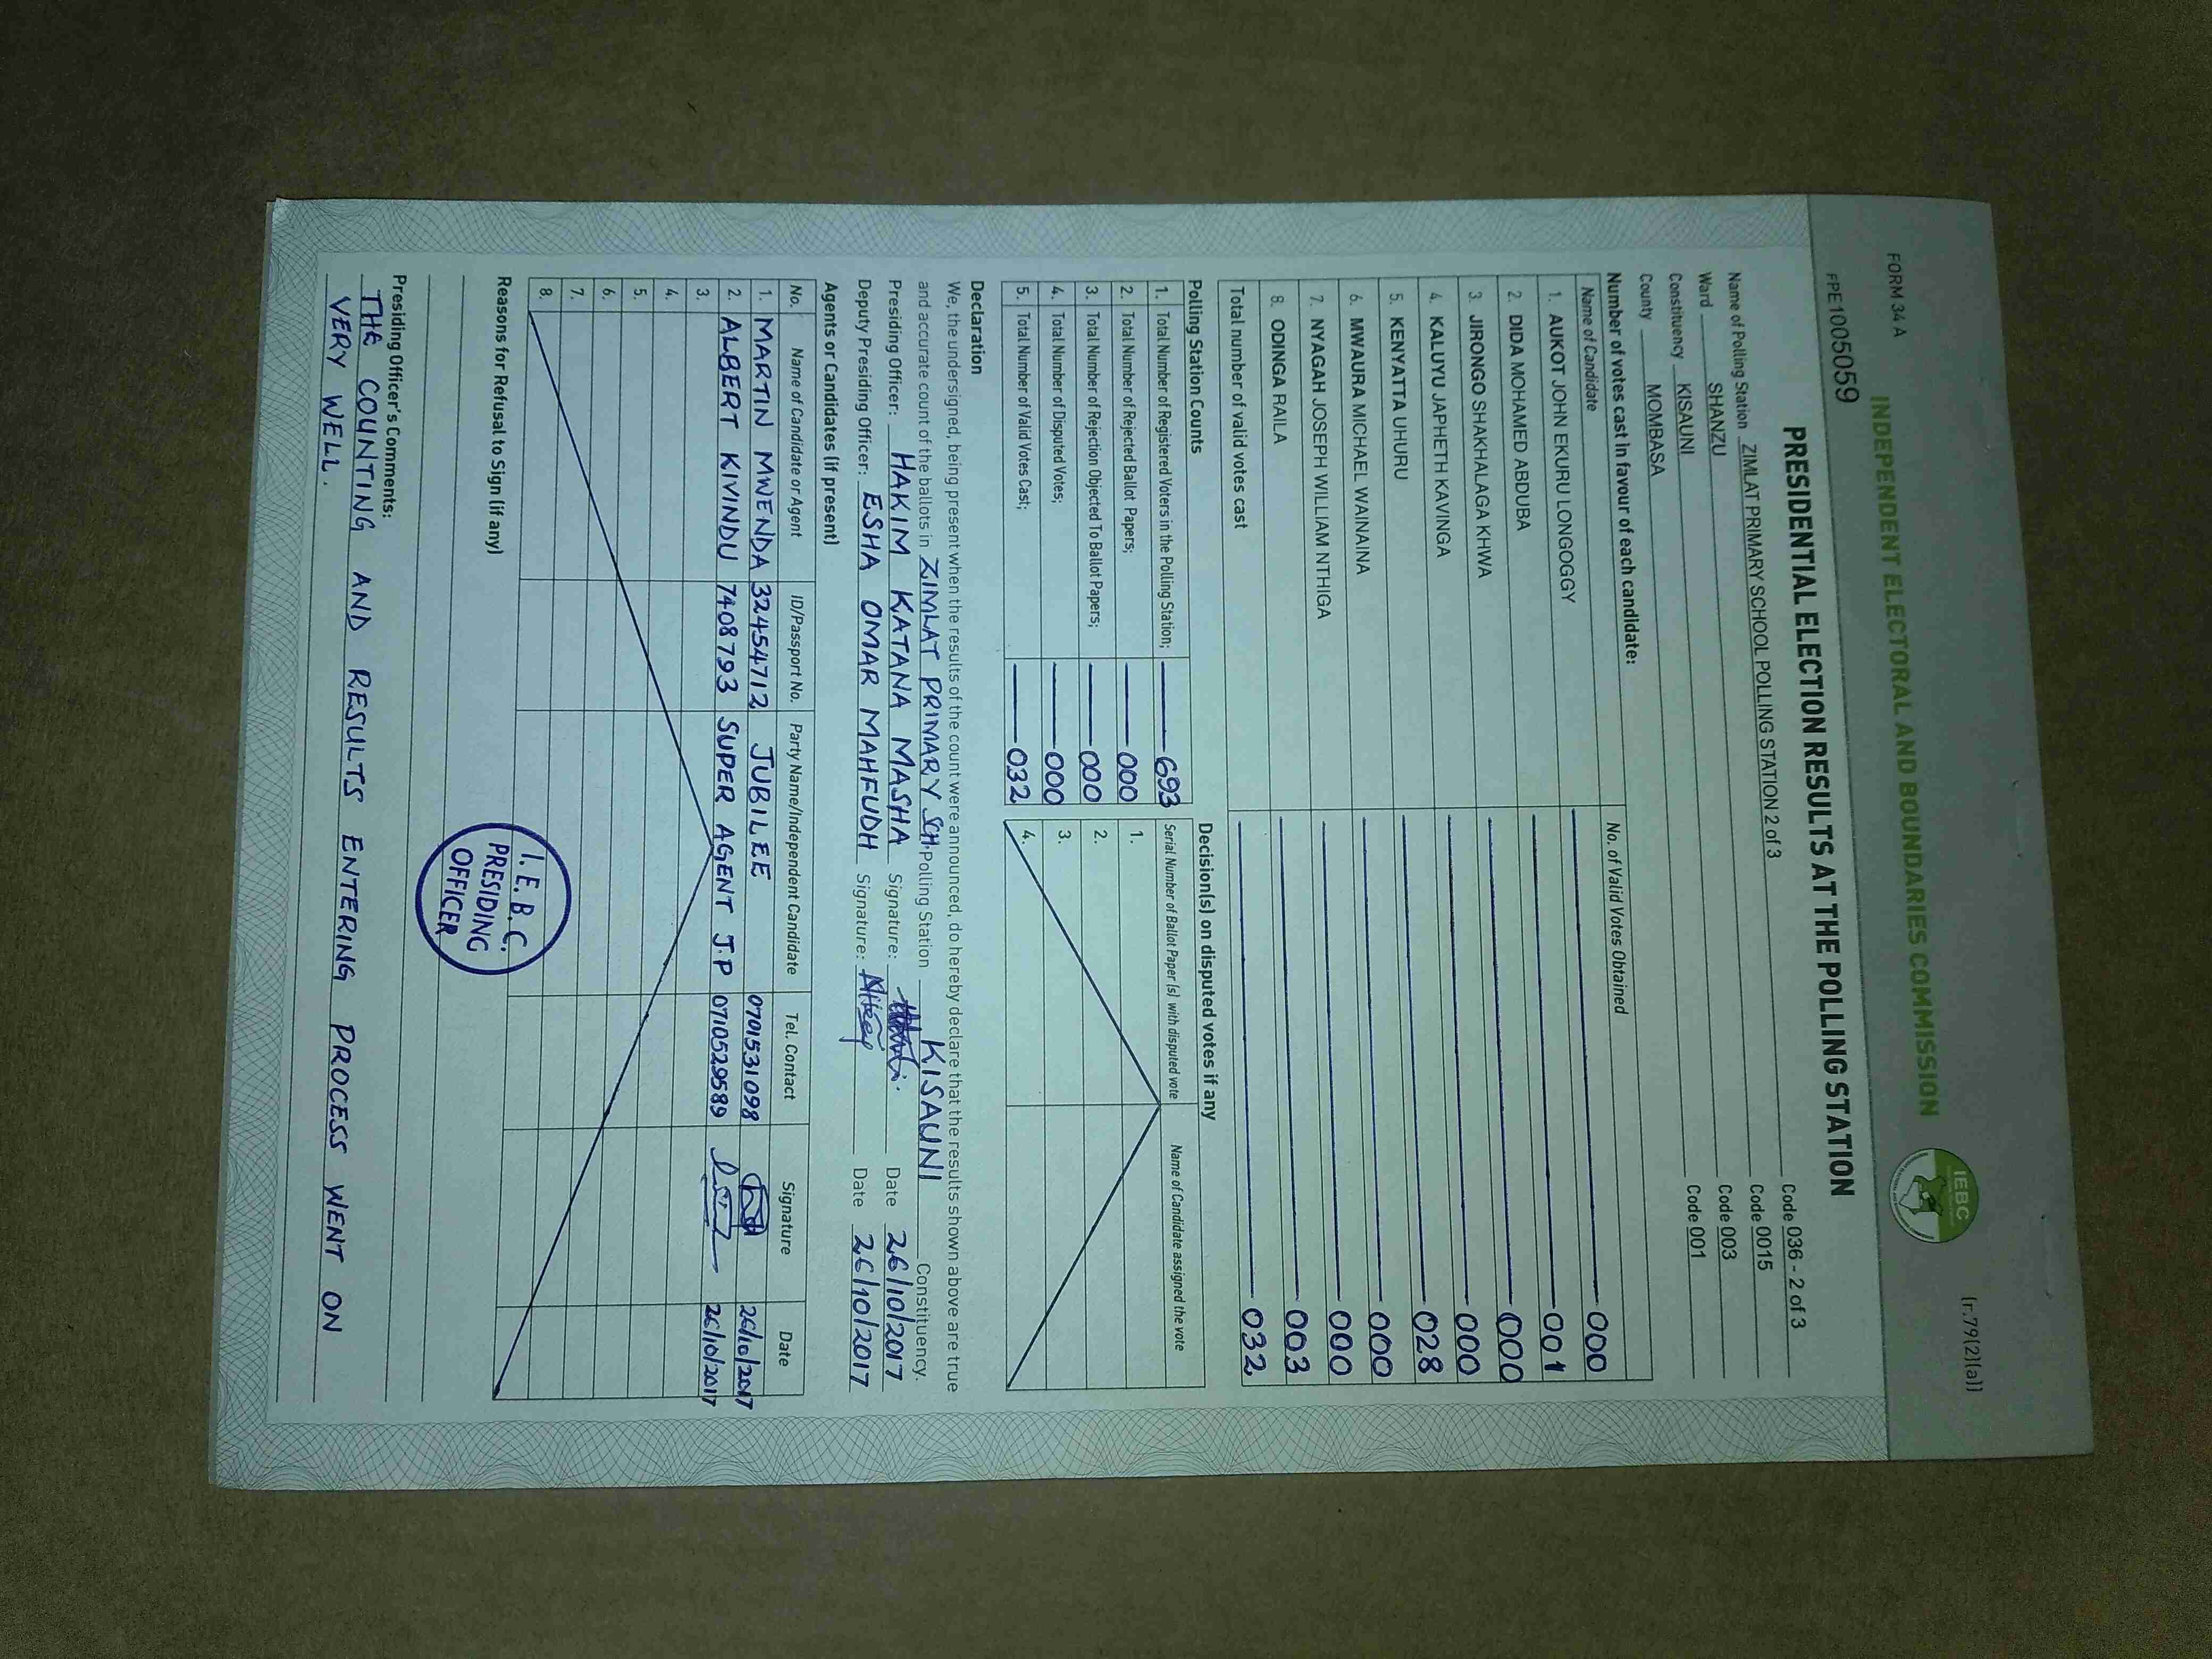 FORM 34 A
(r.79(2)(a))
INDEPENDENT ELECTORAL AND BOUNDARIES COMMISSION
IEBC
FPE1005059
PRESIDENTIAL ELECTION RESULTS AT THE POLLING STATION
Name of Polling Station ZIMLAT PRIMARY SCHOOL POLLING STATION 2 of 3 Code 036 - 2 of 3
Ward SHANZU Code 0015
Constituency KISAUNI Code 003
County MOMBASA Code 001
Number of votes cast in favour of each candidate:
Name of Candidate No. of Valid Votes Obtained
1. AUKOT JOHN EKURU LONGOGGY 000
2. DIDA MOHAMED ABDUBA 001
3. JIRONGO SHAKHALAGA KHWA 000
4. KALUYU JAPHETH KAVINGA 000
5. KENYATTA UHURU 028
6. MWAURA MICHAEL WAINAINA 000
7. NYAGAH JOSEPH WILLIAM NTHIGA 000
8. ODINGA RAILA 003
Total number of valid votes cast 032
Polling Station Counts Decision(s) on disputed votes if any
1. Total Number of Registered Voters in the Polling Station; 693 Serial Number of Ballot Paper (s) with disputed vote Name of Candidate assigned the vote
2. Total Number of Rejected Ballot Papers; 000 1.
3. Total Number of Rejection Objected To Ballot Papers; 000 2.
4. Total Number of Disputed Votes; 000 3.
5. Total Number of Valid Votes Cast; 032 4.
Declaration
We, the undersigned, being present when the results of the count were announced, do hereby declare that the results shown above are true
and accurate count of the ballots in ZIMLAT PRIMARY SCH. Polling Station KISAUNI Constituency.
Presiding Officer: HAKIM KATANA MASHA Signature: Date 26/10/2017
Deputy Presiding Officer: ESHA OMAR MAHFUDH Signature: Date 26/10/2017
Agents or Candidates (if present)
No. Name of Candidate or Agent ID/Passport No. Party Name/Independent Candidate Tel. Contact Signature Date
1. MARTIN MWENDA 32454712 JUBILEE 0701531098 26/10/2017
2. ALBERT KIVINDU 7408793 SUPER AGENT J.P 0710529589 26/10/2017
3.
4.
5.
6.
7.
8.
Reasons for Refusal to Sign (if any)
I.E.B.C.
PRESIDING
OFFICER
Presiding Officer's Comments:
THE COUNTING AND RESULTS ENTERING PROCESS WENT ON
VERY WELL.